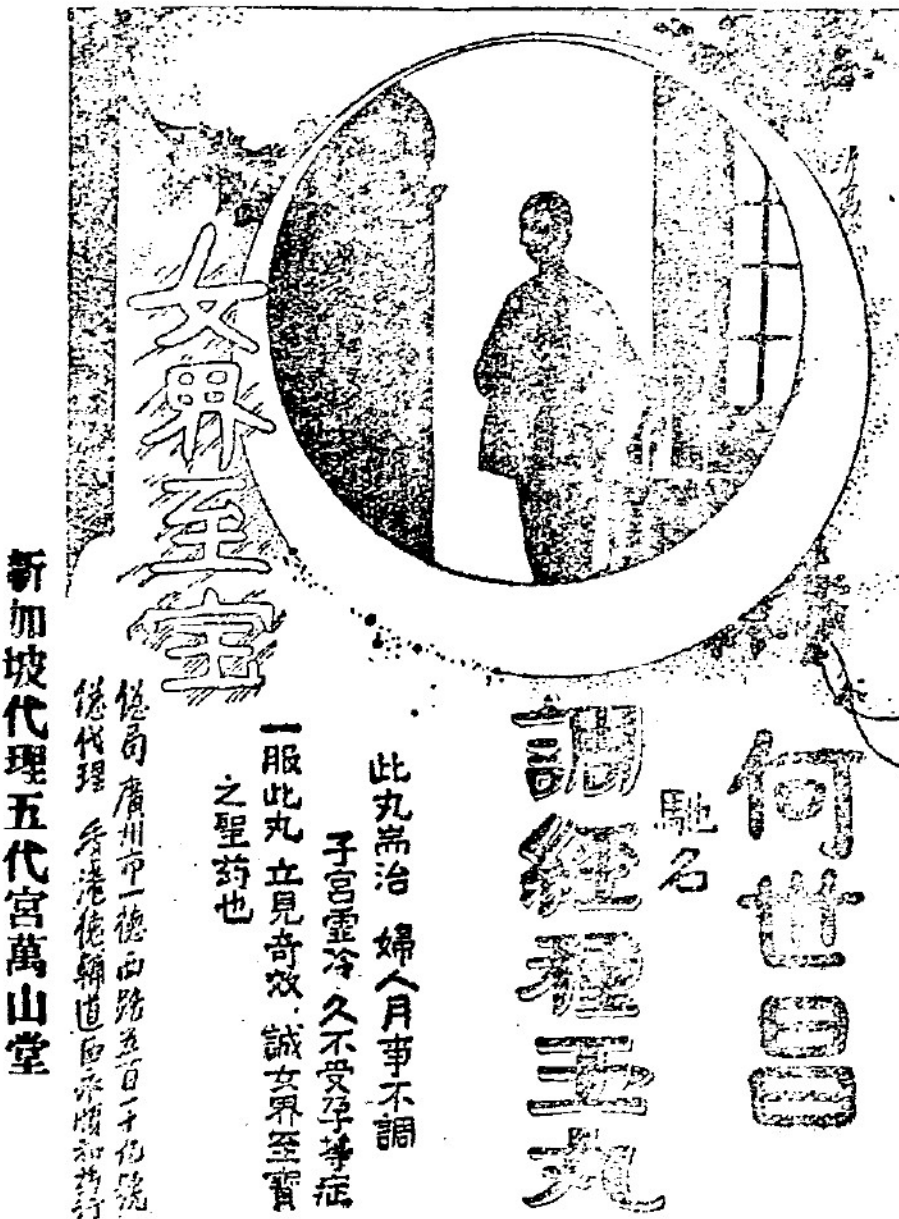 何世昌
馳名
調經種玉丸
此丸耑治 婦人月事不調
子宮虛冷 久不受孕等症
一服此丸 立見奇效，誠女界至寶
之聖药也
女界至宝
總局 廣州市一德西路五百一十
總代理 香港德輔道西永順和
新加坡代理五代宮萬山堂